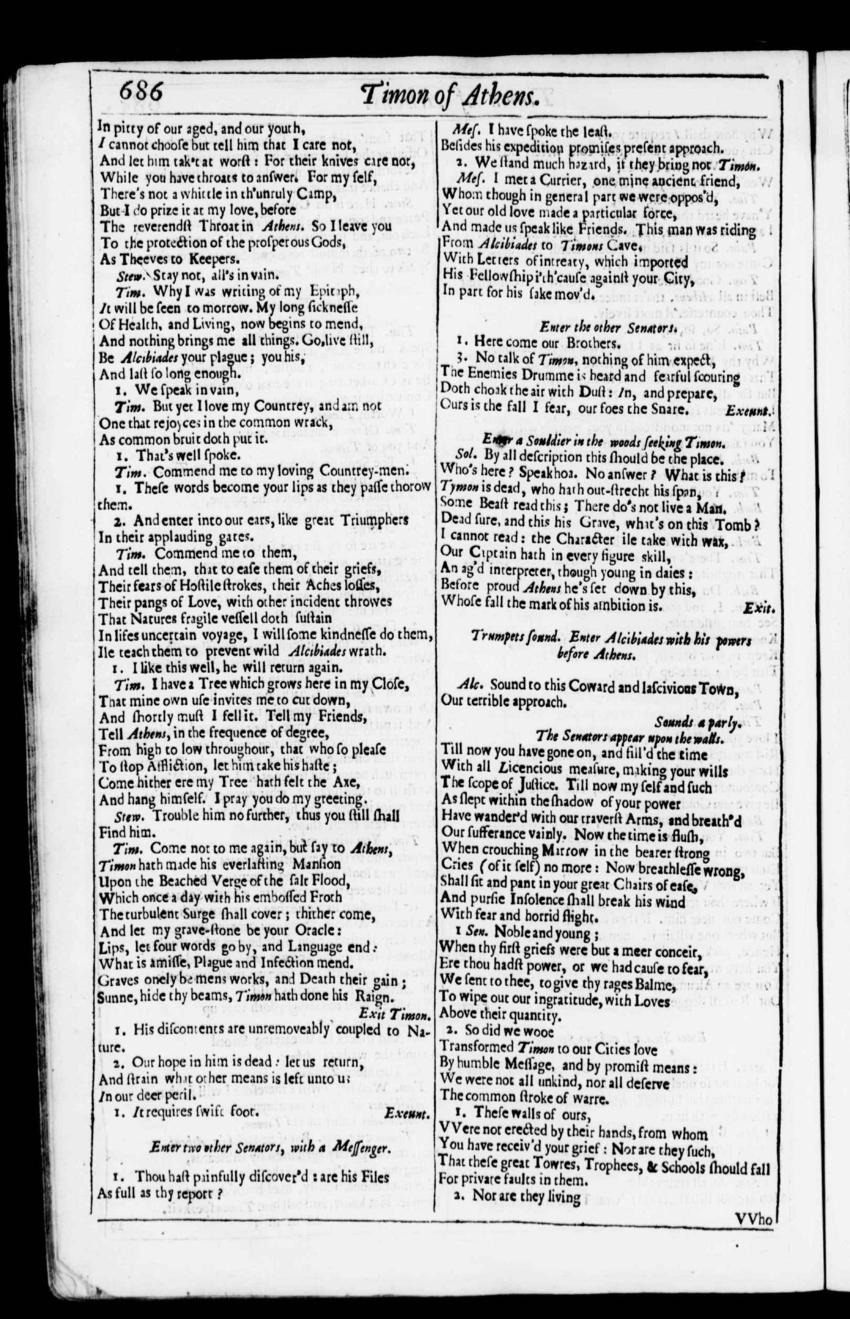 686
Timon of Athens.
In pitty of our aged, and our youth,
I cannot choose but tell him that I care not,
And let him tak't at worst : For their knives care not,
While you have throats to answer. For my self,
There's not a whittle in th'unruly Camp,
But I do prize it at my love, before
The reverendst Throat in Athens. So I leave you
To the protection of the prosperous Gods,
As Theeves to Keepers.
Stew. Stay not, all's in vain.
Tim. Why I was writing of my Epitaph,
It will be seen to morrow. My long sicknesse
Of Health, and Living, now begins to mend,
And nothing brings me all things. Go, live still,
Be Alcibiades your plague ; you his,
And last so long enough.
1. We speak in vain,
Tim. But yet I love my Countrey, and am not
One that rejoyces in the common wrack,
As common bruit doth put it.
1. That's well spoke.
Tim. Commend me to my loving Countrey-men.
1. These words become your lips as they passe thorow
them.
2. And enter into our ears, like great Triumphers
In their applauding gates.
Tim. Commend me to them,
And tell them, that to ease them of their griefs,
Their fears of Hostile strokes, their Aches losses,
Their pangs of Love, with other incident throwes
That Natures fragile vessell doth sustain
In lifes uncertain voyage, I will some kindnesse do them,
Ile teach them to prevent wild Alcibiades wrath.
1. I like this well, he will return again.
Tim. I have a Tree which grows here in my Close,
That mine own use invites me to cut down,
And shortly must I fell it. Tell my Friends,
Tell Athens, in the frequence of degree,
From high to low throughout, that who so please
To stop Affliction, let him take his haste ;
Come hither ere my Tree hath felt the Axe,
And hang himself. I pray you do my greeting.
Stew. Trouble him no further, thus you still shall
Find him.
Tim. Come not to me again, but say to Athens,
Timon hath made his everlasting Mansion
Upon the Beached Verge of the salt Flood,
Which once a day with his embossed Froth
The turbulent Surge shall cover ; thither come,
And let my grave-stone be your Oracle :
Lips, let four words go by, and Language end :
What is amisse, Plague and Infection mend.
Graves onely be mens works, and Death their gain ;
Sunne, hide thy beams, Timon hath done his Raign.
Exit Timon.
1. His discontents are unremoveably coupled to Na-
ture.
2. Our hope in him is dead : let us return,
And strain what other means is left unto us
In our deer peril.
1. It requires swift foot. Exeunt.
Enter two other Senators, with a Messenger.
1. Thou hast painfully discover'd : are his Files
As full as thy report ?
Mes. I have spoke the least.
Besides his expedition promises present approach.
2. We stand much hazard, if they bring not Timon.
Mes. I met a Currier, one mine ancient friend,
Whom though in general part we were oppos'd,
Yet our old love made a particular force,
And made us speak like Friends. This man was riding
From Alcibiades to Timons Cave,
With Letters of intreaty, which imported
His Fellowship i'th'cause against your City,
In part for his sake mov'd.
Enter the other Senators.
1. Here come our Brothers.
3. No talk of Timon, nothing of him expect,
The Enemies Drumme is heard and fearful scouring
Doth choak the air with Dust : In, and prepare,
Ours is the fall I fear, our foes the Snare. Exeunt.
Enter a Souldier in the woods seeking Timon.
Sol. By all description this should be the place.
Who's here ? Speak hoa. No answer ? What is this ?
Tymon is dead, who hath out-strecht his span,
Some Beast read this ; There do's not live a Man.
Dead sure, and this his Grave, what's on this Tomb ?
I cannot read : the Character ile take with wax,
Our Captain hath in every figure skill,
An ag'd interpreter, though young in daies :
Before proud Athens he's set down by this,
Whose fall the mark of his ambition is. Exit.
Trumpets sound. Enter Alcibiades with his powers
before Athens.
Alc. Sound to this Coward and lascivious Town,
Our terrible approach.
Sounds a parly.
The Senators appear upon the walls.
Till now you have gone on, and fill'd the time
With all Licencious measure, making your wills
The scope of Justice. Till now my self and such
As slept within the shadow of your power
Have wander'd with our traverst Arms, and breath'd
Our sufferance vainly. Now the time is flush,
When crouching Marrow in the bearer strong
Cries (of it self) no more : Now breathlesse wrong,
Shall sit and pant in your great Chairs of ease,
And pursie Insolence shall break his wind
With fear and horrid flight.
1 Sen. Noble and young ;
When thy first griefs were but a meer conceit,
Ere thou hadst power, or we had cause to fear,
We sent to thee, to give thy rages Balme,
To wipe out our ingratitude, with Loves
Above their quantity.
2. So did we wooe
Transformed Timon to our Cities love
By humble Message, and by promist means :
We were not all unkind, nor all deserve
The common stroke of warre.
1. These walls of ours,
VVere not erected by their hands, from whom
You have receiv'd your grief : Nor are they such,
That these great Towres, Trophees, & Schools should fall
For private faults in them.
2. Nor are they living
VVho